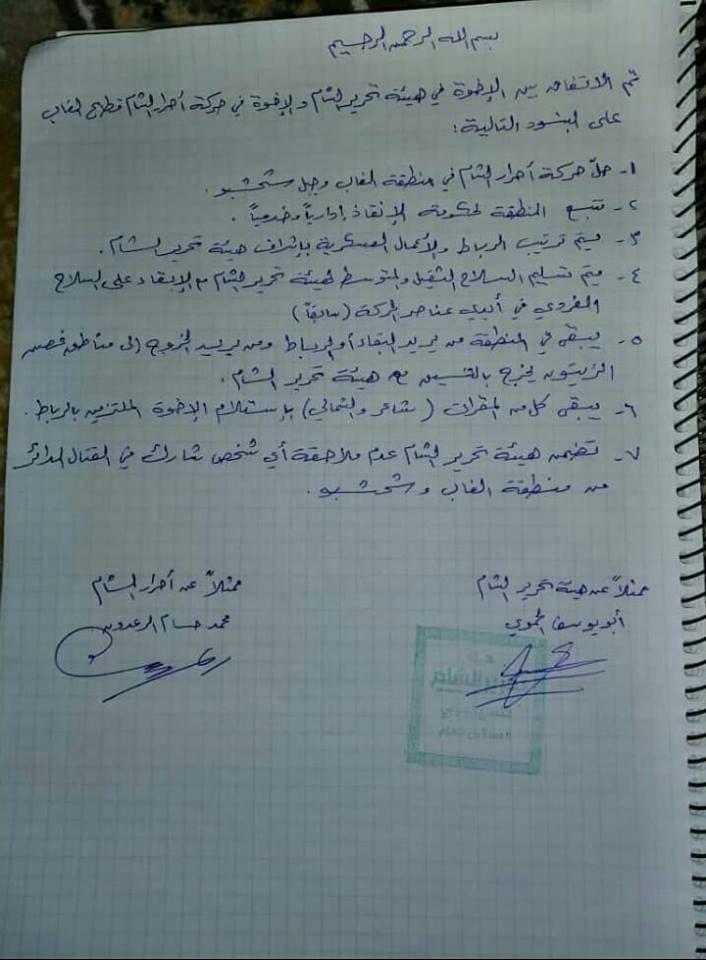 بسم الله الرحمن الرحيم
تم الاتفاق بين الإخوة في هيئة تحرير الشام والإخوة في حركة أحرار الشام قطاع الغاب
على البنود التالية:
١- حلّ حركة أحرار الشام في منطقة الغاب وجبل شحشبو.
٢- تتبع المنطقة لحكومة الإنقاذ إدارياً وخدمياً.
٣- يتم ترتيب الرباط والأعمال العسكرية بإشراف هيئة تحرير الشام.
٤- يتم تسليم السلاح الثقيل والمتوسط لهيئة تحرير الشام مع الإبقاء على السلاح
الفردي في أيدي عناصر الحركة (سابقاً)
٥- يبقى في المنطقة من يريد البقاء أو الرباط ومن يريد الخروج إلى مناطق غصن
الزيتون يخرج بالتنسيق مع هيئة تحرير الشام.
٦- يبقى كل من المقرات (شاعر والشمالي) بإستلام الإخوة الملتزمين بالرباط.
٧- تضمن هيئة تحرير الشام عدم ملاحقة أي شخص شارك في القتال الدائر
من منطقة الغاب وشحشبو.
ممثلاً عن هيئة تحرير الشام
أبو يوسف الحموي
ممثلاً عن أحرار الشام
محمد حسام
تحرير الشام